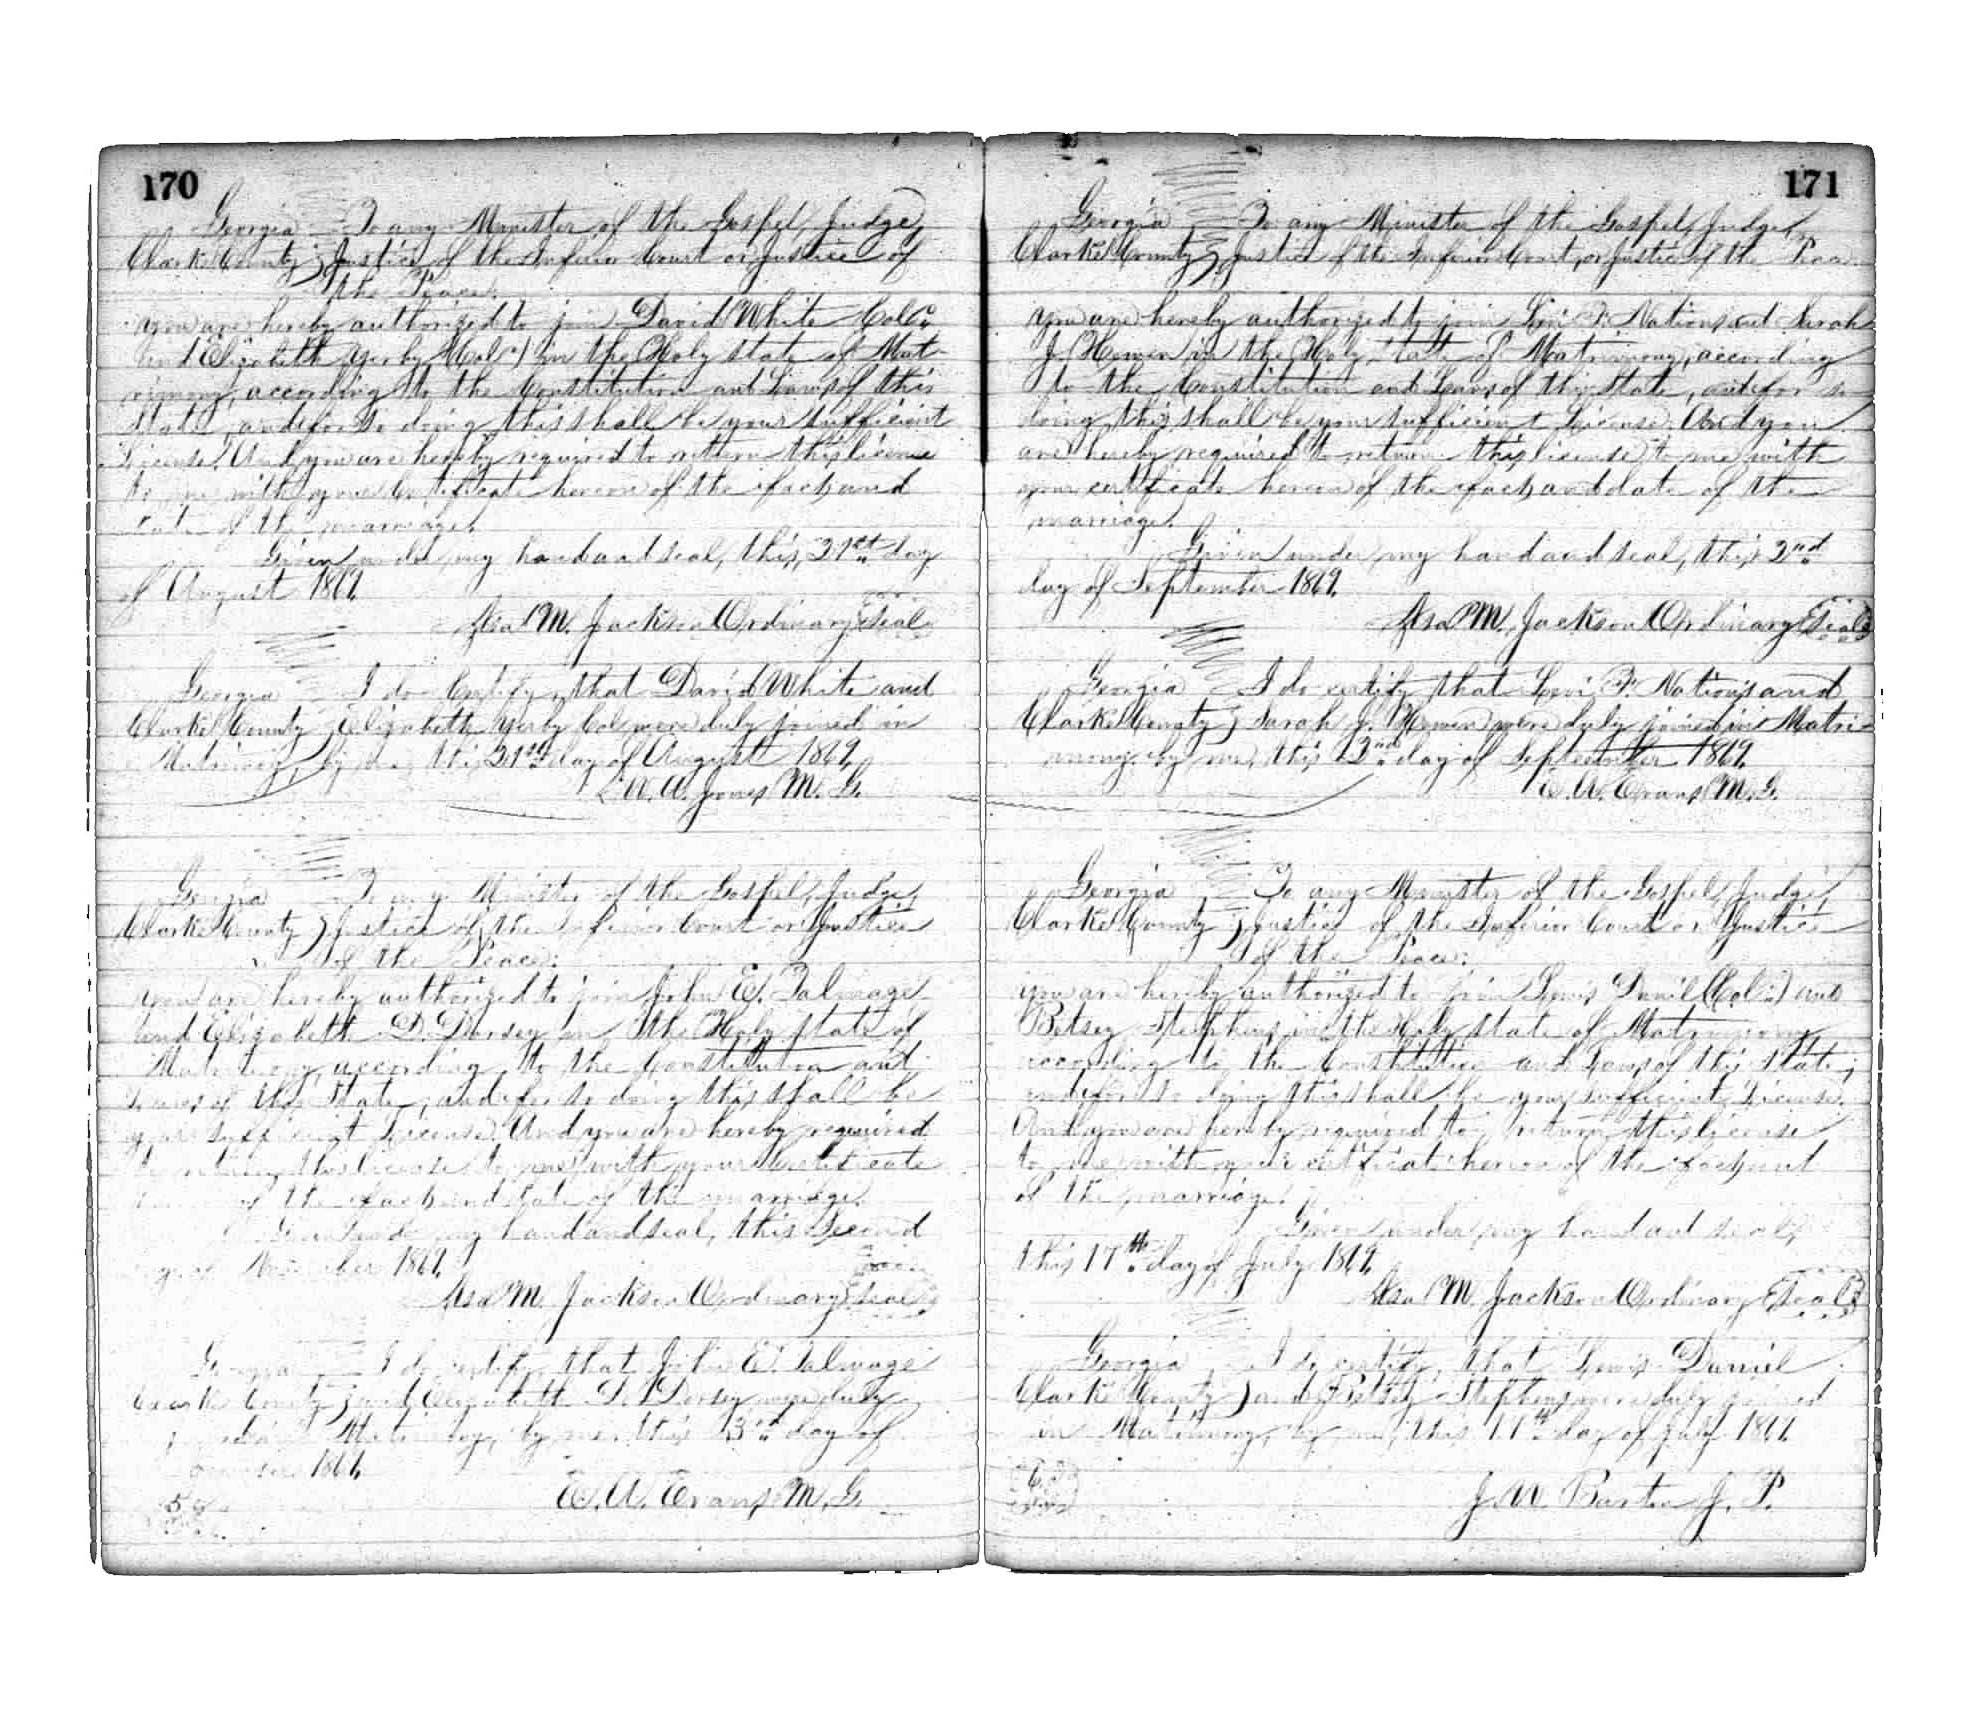 170
Georgia To any Minister of the Gospel, Judge,
Clarke County } Justice of the Inferior Court or Justice of
the Peace:
you are hereby authorized to join David White Col.
and Elizabeth Yerby (Col.) in the Holy state of Mat-
rimony, according to the Constitution and Laws of this
State, and for so doing this shall be your sufficient
License. And you are hereby required to return this license
to me with your certificate hereon of the fact and
date of the marriage.
Given under my hand and seal, this, 31st day
of August 1869.
Asa M. Jackson Ordinary Seal
Georgia I do Certify, that David White and
Clarke County } Elizabeth Yerby Col were duly joined in
Matrimony, by me, this 31st day of August 1869.
W. A. Jones M. G.
Georgia To any Minister of the Gospel, Judge,
Clarke County } Justice of the Inferior Court or Justice
of the Peace:
you are hereby authorized to join John E. Talmage
and Elizabeth D. Dorsey in the Holy state of
Matrimony, according to the Constitution and
Laws of this State, and for so doing this shall be
your sufficient License. And you are hereby required
to return this license to me with your certificate
of the fact and date of the marriage.
Given under my hand and seal, this Second
1869.
Asa M. Jackson Ordinary Seal
Georgia I do certify, that John E. Talmage
Clarke County } and Elizabeth D. Dorsey were duly
joined in Matrimony, by me, this 3rd day of
1869.
E. A. Evans M. G.
171
Georgia To any Minister of the Gospel, Judge,
Clarke County } Justice of the Inferior Court, or Justice of the Peace
you are hereby authorized to join Levi F. Nations and Sarah
J. Hewen in the Holy state of Matrimony, according
to the Constitution and Laws of this State, and for so
doing this shall be your sufficient License. And you
are hereby required to return this license to me with
your certificate hereon of the fact and date of the
marriage.
Given under my hand and seal, this 2nd
day of September 1869.
Asa M. Jackson Ordinary Seal
Georgia I do certify that Levi F. Nations and
Clarke County } Sarah J. Hewen were duly joined in Matri-
mony, by me, this 2nd day of September 1869.
E. A. Evans M. G.
Georgia To any Minister of the Gospel, Judge,
Clarke County } Justice of the Inferior Court or Justice
of the Peace:
you are hereby authorized to join Lewis Daniel (Col.) and
Betsey Stephens, in the Holy state of Matrimony
according to the Constitution and Laws of this State;
and for so doing this shall be your sufficient License.
And you are hereby required to return this license
to me with your certificate hereon of the fact and
of the marriage.
Given under my hand and seal,
this 17th day of July 1869.
Asa M. Jackson Ordinary Seal
Georgia I do certify, that Lewis Daniel
Clarke County } and Betsey Stephens were duly joined
in Matrimony, by me, this 17th day of July 1869.
J. W. J. P.